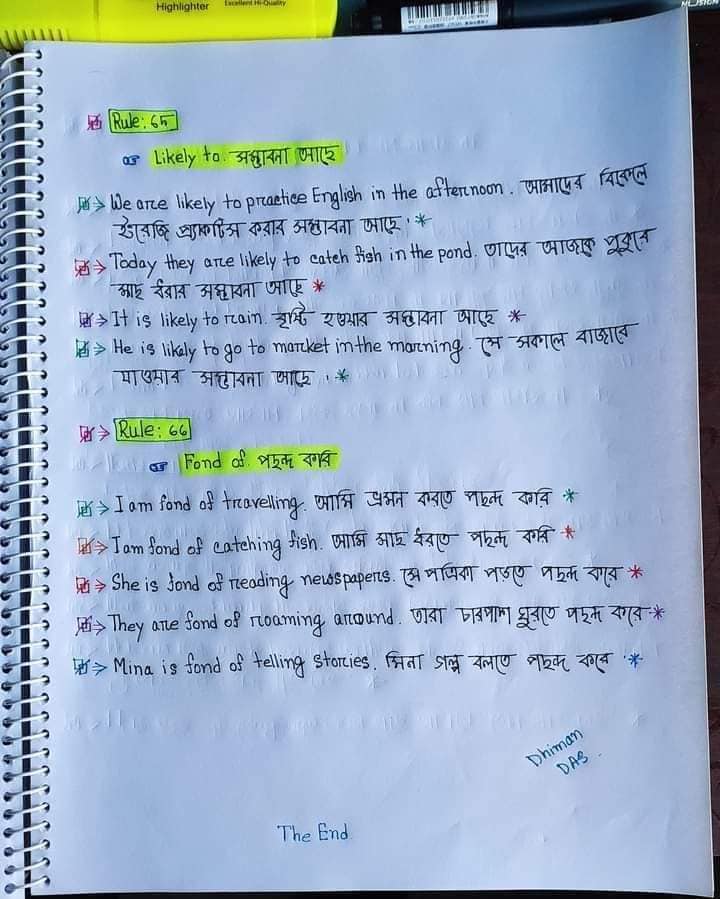 Highlighter
Excellent Hi-Quality
Rule: 65
Likely to. সম্ভাবনা আছে
We are likely to practice English in the afternoon. আমাদের বিকেলে
ইংরেজি প্র্যাকটিস করার সম্ভাবনা আছে। *
Today they are likely to catch fish in the pond. তাদের আজকে পুকুরে
মাছ ধরার সম্ভাবনা আছে *
It is likely to rain. বৃষ্টি হওয়ার সম্ভাবনা আছে *
He is likely to go to market in the morning. সে সকালে বাজারে
যাওয়ার সম্ভাবনা আছে। *
Rule: 66
Fond of. পছন্দ করি
I am fond of travelling. আমি ভ্রমন করতে পছন্দ করি *
I am fond of catching fish. আমি মাছ ধরতে পছন্দ করি *
She is fond of reading newspapers. সে পত্রিকা পড়তে পছন্দ করে *
They are fond of roaming around. তারা চারপাশ ঘুরতে পছন্দ করে *
Mina is fond of telling stories. মিনা গল্প বলতে পছন্দ করে *
Dhiman
DAS.
The End